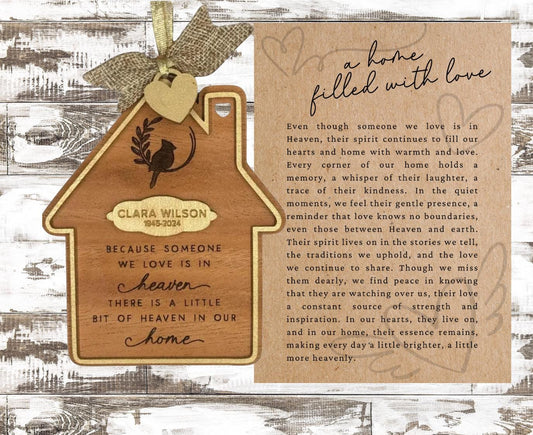 CLARA WILSON
1945-2024
BECAUSE SOMEONE
WE LOVE IS IN
heaven
THERE IS A LITTLE
BIT OF HEAVEN IN OUR
home
a home
filled with love
Even though someone we love is in
Heaven, their spirit continues to fill our
hearts and home with warmth and love.
Every corner of our home holds a
memory, a whisper of their laughter, a
trace of their kindness. In the quiet
moments, we feel their gentle presence, a
reminder that love knows no boundaries,
even those between Heaven and earth.
Their spirit lives on in the stories we tell,
the traditions we uphold, and the love
we continue to share. Though we miss
them dearly, we find peace in knowing
that they are watching over us, their love
a constant source of strength and
inspiration. In our hearts, they live on,
and in our home, their essence remains,
making every day a little brighter, a little
more heavenly.